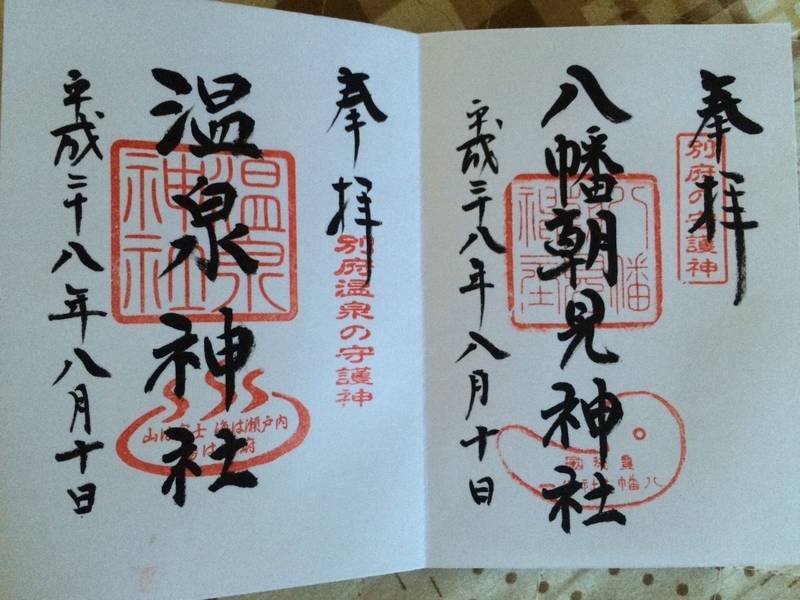 奉拝
別府の守護神
八幡朝見神社
平成二十八年八月十日
奉拝
別府温泉の守護神
温泉神社
温泉
神社
山は富士 海は瀬戸内
湯は別府
平成二十八年八月十日